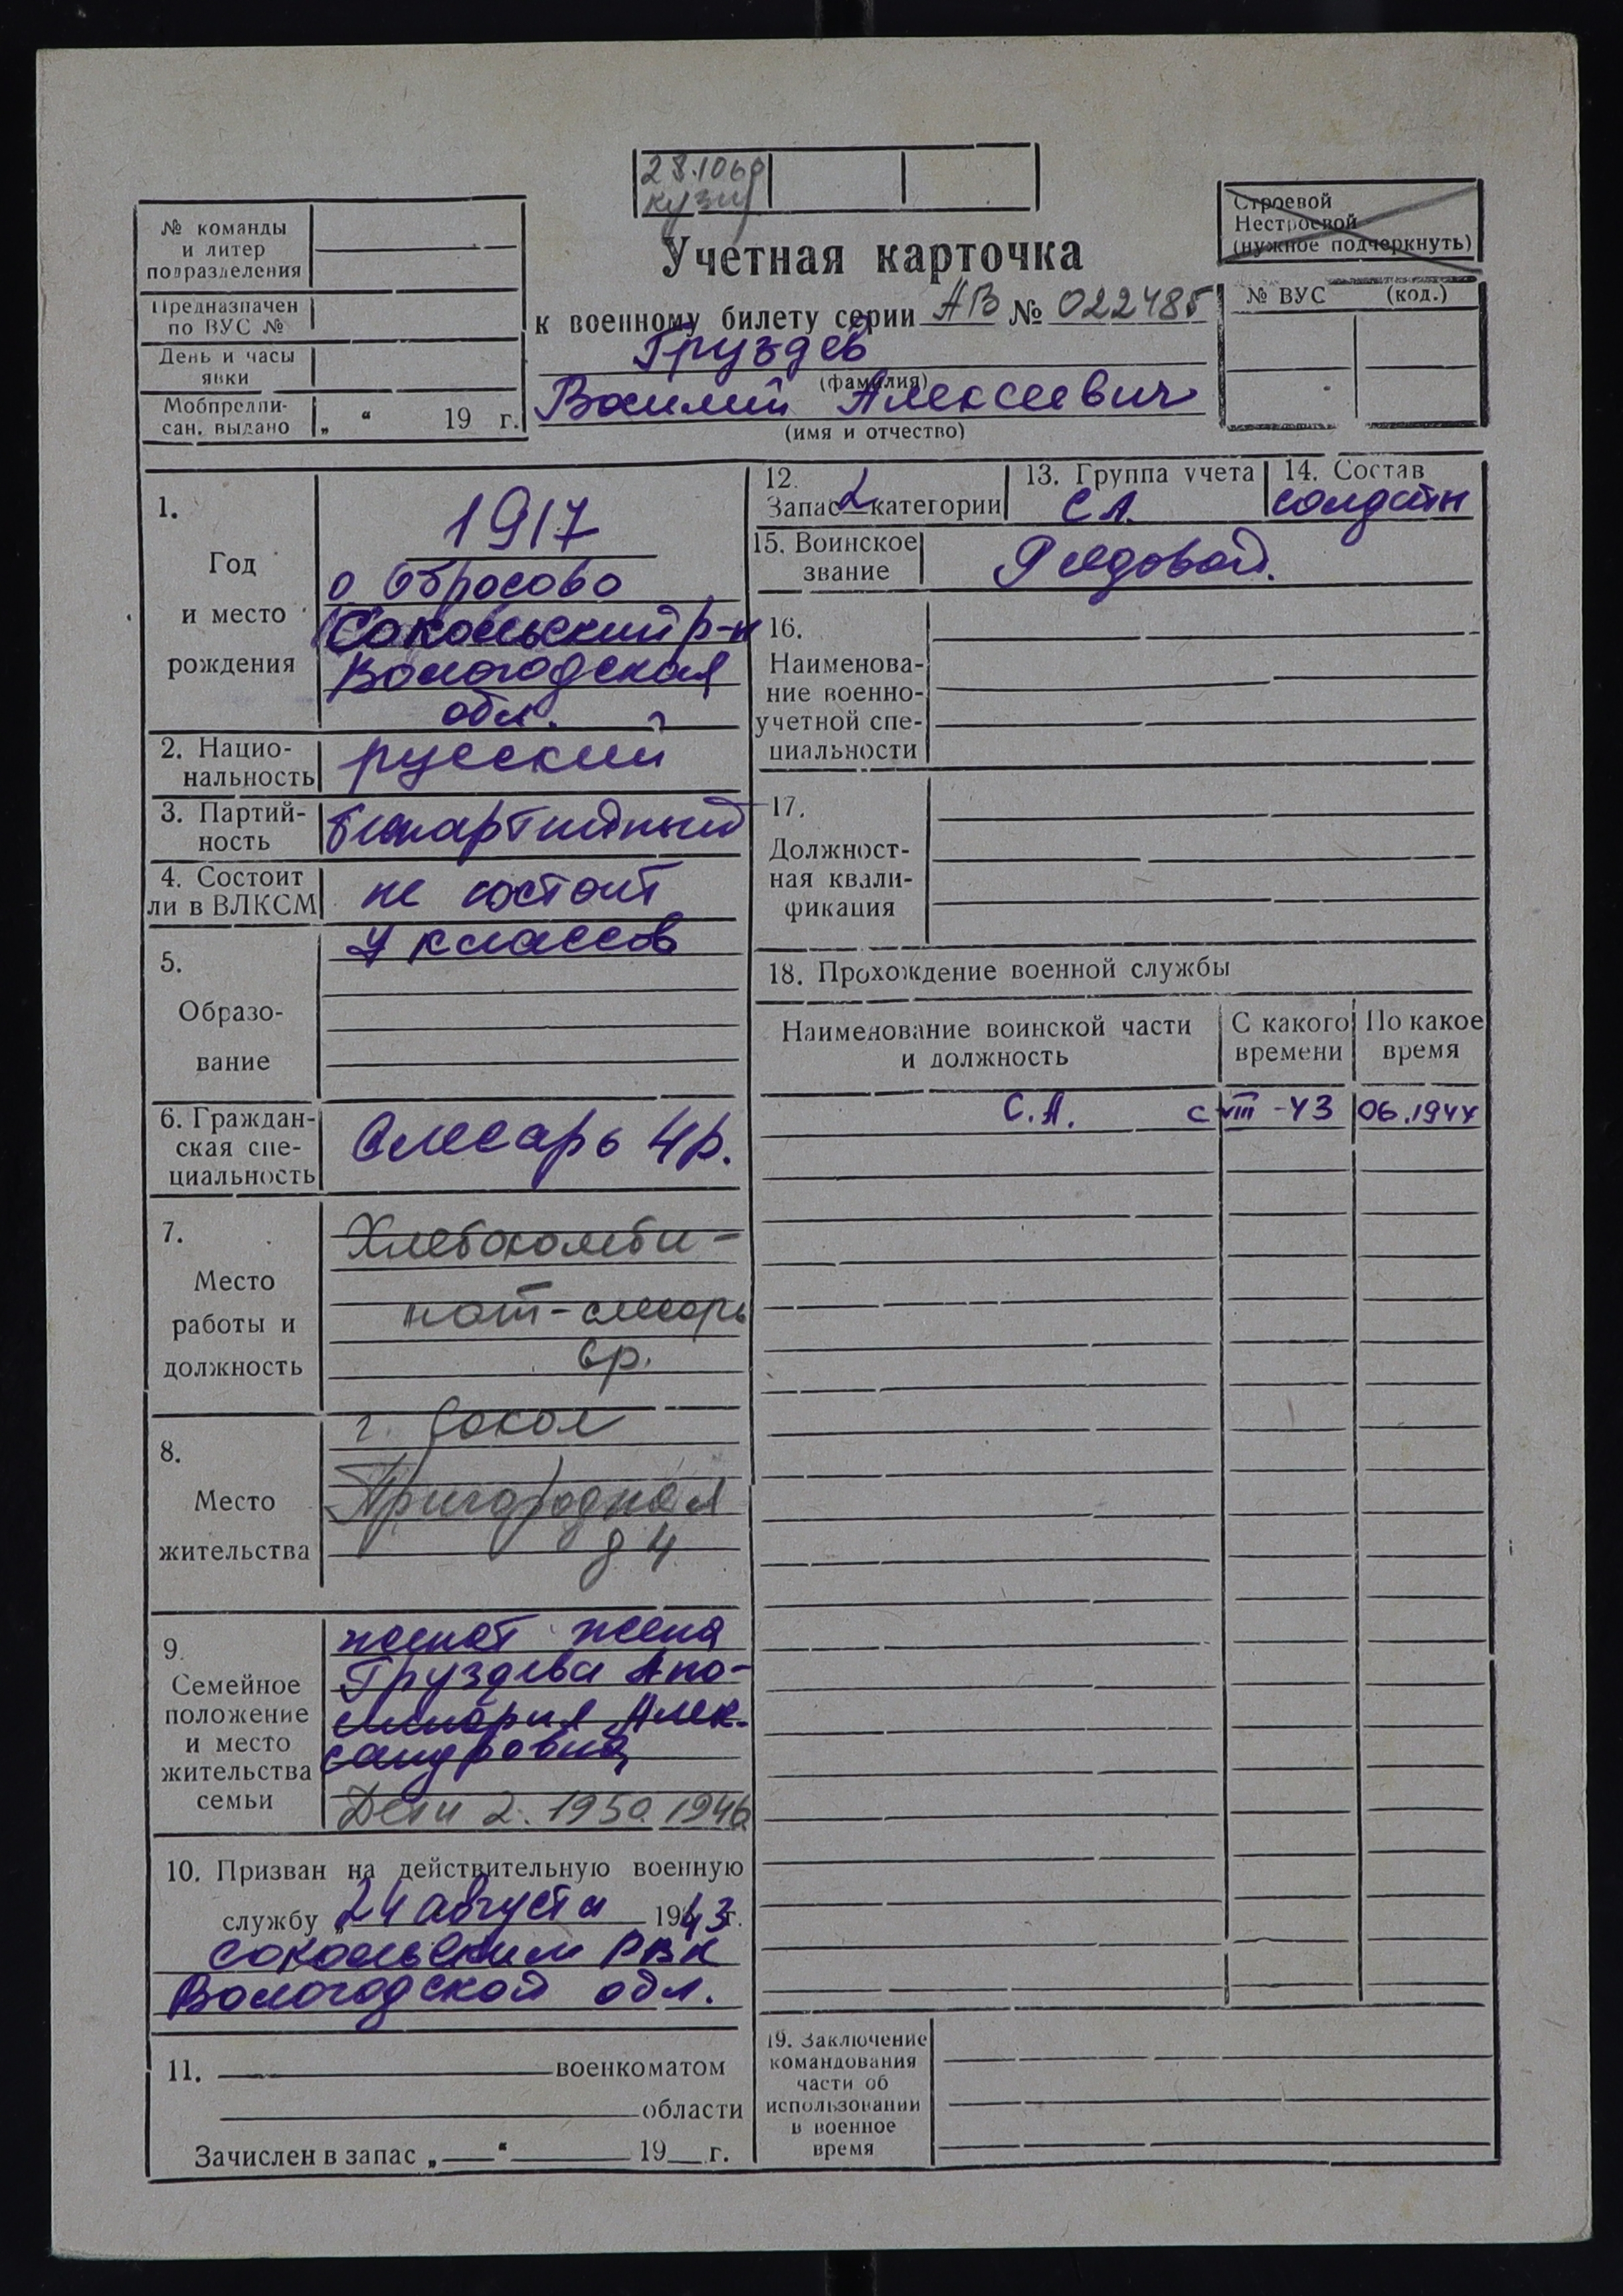 28.10.69
кузн
№ команды
и литер
подразделения
Предназначен
по ВУС №
День и часы
явки
Мобпредпи-
сан. выдано „ “ 19 г.
Учетная карточка
к военному билету серии АВ № 022485
Груздев
(фамилия)
Василий Алексеевич
(имя и отчество)
Строевой
Нестроевой
(нужное подчеркнуть)
№ ВУС (код.)
1.
Год
и место
рождения
1917
Обросово
Сокольский р-н
Вологодская
обл.
2. Нацио-
нальность
русский
3. Партий-
ность
беспартийный
4. Состоит
ли в ВЛКСМ
не состоит
5.
Образо-
вание
4 классов
6. Граждан-
ская спе-
циальность
Слесарь 4р.
7.
Место
работы и
должность
Хлебокомби-
нат-слесарь
6р.
8.
Место
жительства
г. Сокол
Пригородная
д 4
9.
Семейное
положение
и место
жительства
семьи
женат жена
Груздева Апо-
линария Алек-
сандровна
Дети 2. 1950 1946
10. Призван на действительную военную
службу „24 августа 1943 г.
Сокольским РВК
Вологодской обл.
11. военкоматом
области
Зачислен в запас „ “ 19 г.
12.
Запас 2 категории
13. Группа учета
СА
14. Состав
солдаты
15. Воинское
звание
Рядовой.
16.
Наименова-
ние военно-
учетной спе-
циальности
17.
Должност-
ная квали-
фикация
18. Прохождение военной службы
Наименование воинской части
и должность
С какого
времени
По какое
время
С.А. с VIII -43 06.1944
19. Заключение
командования
части об
использовании
в военное
время